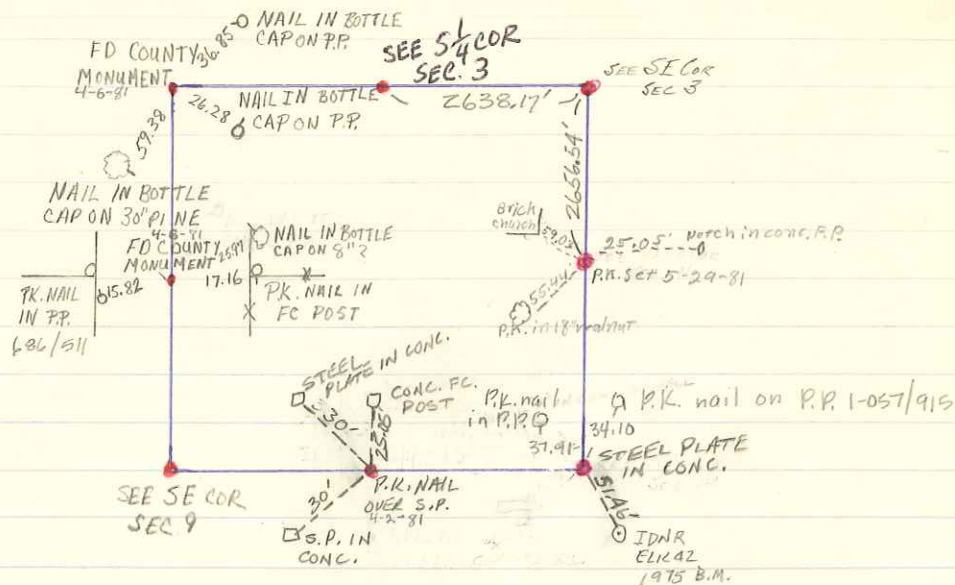 NAIL IN BOTTLE
CAP ON P.P.
36.85
FD COUNTY
MONUMENT
4-6-81
SEE S 1/4 COR
SEC. 3
SEE SE COR
SEC 3
26.28
NAIL IN BOTTLE
CAP ON P.P.
2638.17'
59.38
2656.54'
NAIL IN BOTTLE
CAP ON 30" PINE
4-6-81
FD COUNTY
MONUMENT
25.97
NAIL IN BOTTLE
CAP ON 8" ?
17.16
P.K. NAIL IN
FC POST
15.82
P.K. NAIL
IN P.P.
686/511
Brick
church
59.03
25.05'
notch in conc. F.P.
P.K. Set 5-29-81
55.44
P.K. in 18" walnut
STEEL
PLATE IN CONC.
3.30'
CONC. FC.
POST
P.K. nail
in P.P.
P.K. nail on P.P. 1-057/915
37.91
34.10
STEEL PLATE
IN CONC.
SEE SE COR
SEC 9
30'
P.K. NAIL
OVER S.P.
4-2-81
S.P. IN
CONC.
51.46'
IDNR
ELK 42
1975 B.M.